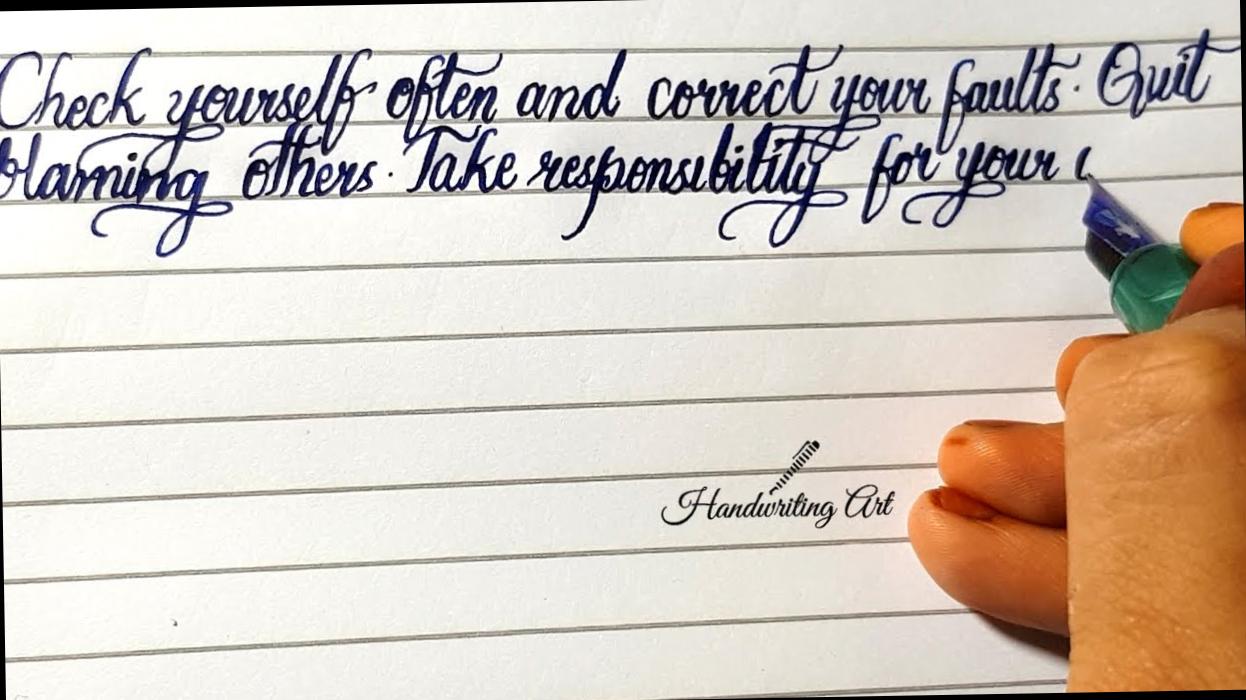 Check yourself often and correct your faults. Quit
blaming others. Take responsibility for your
Handwriting Art